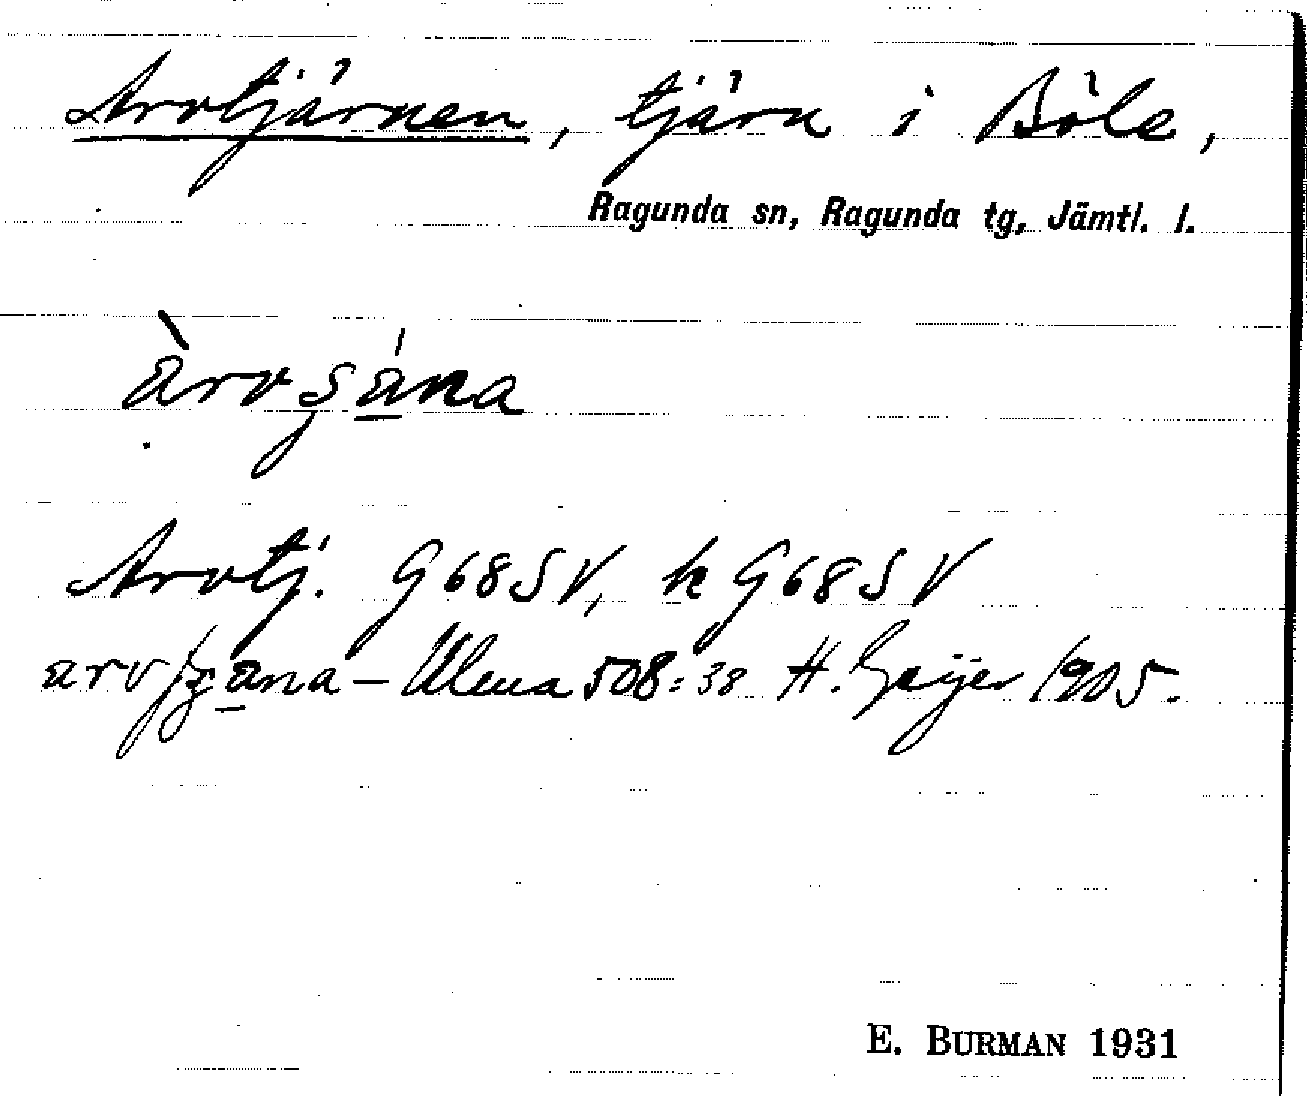 Arvtjärnen, tjärn i Böle,
Ragunda sn, Ragunda tg, Jämtl. l.
àrvʂána
Arvtj. G68SV, k G68SV
arv/ʂana – Ulma 508:38 H. Geijer 1905.
E. BURMAN 1931